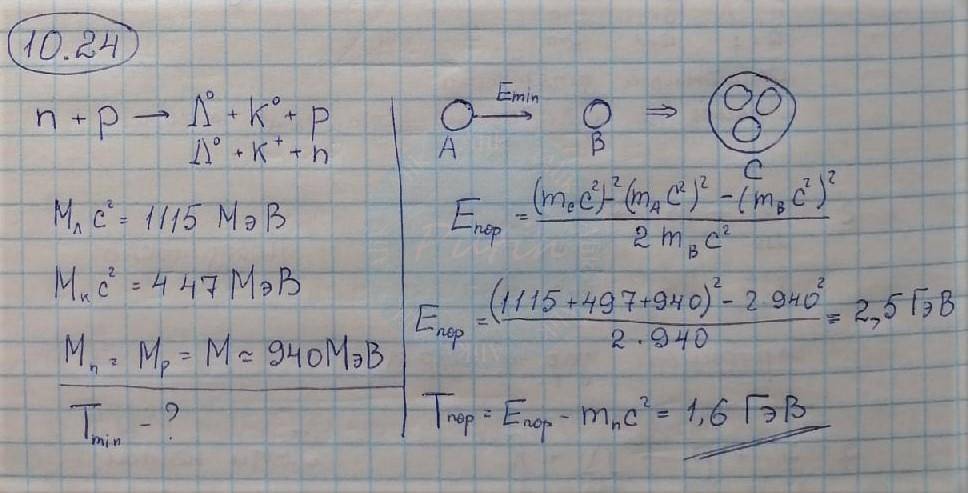 10.24
n + p → Λ⁰ + K⁰ + p
Λ⁰ + K⁺ + n
M_Λ c² = 1115 МэВ
M_K c² = 447 МэВ
M_n = M_p = M ≈ 940 МэВ
T_min - ?
E_min
A B ⇒ C
E_пор = ((m_C c²)² - (m_A c²)² - (m_B c²)²) / (2 m_B c²)
E_пор = ((1115 + 497 + 940)² - 2 · 940²) / (2 · 940) = 2,5 ГэВ
T_пор = E_пор - m_n c² = 1,6 ГэВ